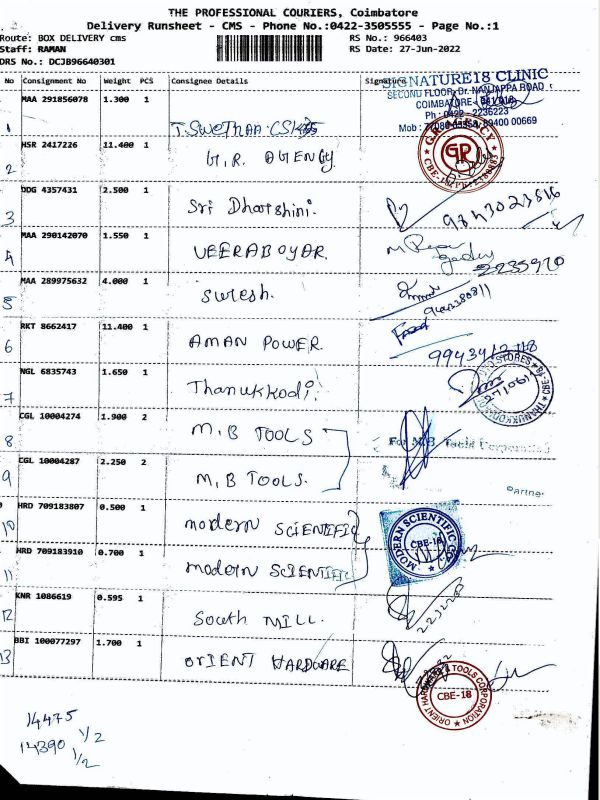 THE PROFESSIONAL COURIERS, Coimbatore
Delivery Runsheet - CMS - Phone No.:0422-3505555 - Page No.:1
Route: BOX DELIVERY cms RS No.: 966403
Staff: RAMAN RS Date: 27-Jun-2022
DRS No.: DCJB96640301
No Consignment No Weight PCS Consignee Details Signature
SIGNATURE18 CLINIC
SECOND FLOOR, Dr. NANJAPPA ROAD
COIMBATORE - 641 018
Ph : 0422 - 2236223
89400 00669
1 MAA 291856078 1.300 1 T. SWETHAA
2 HSR 2417226 11.400 1 G.R. AGENCY
GR
3 DDG 4357431 2.500 1 Sri Dharshini.
4 MAA 290142070 1.550 1 VEERABOYAR.
5 MAA 289975632 4.000 1 Suresh.
6 RKT 8662417 11.400 1 AMAN POWER.
7 NGL 6835743 1.650 1 Thanukkodi.
8 CGL 10004274 1.900 2 M.B TOOLS
For M.B. Tools Corporation
9 CGL 10004287 2.250 2 M.B TOOLS.
Partner
10 HRD 709183807 0.500 1 modern SCIENTIFIC
MODERN SCIENTIFIC CO
CBE-18
11 HRD 709183910 0.700 1 modern SCIENTIFIC
12 KNR 1086619 0.595 1 South MILL.
13 BBI 100077297 1.700 1 ORIENT HARDWARE
ORIENT HARDWARE & TOOLS CORPORATION
CBE-18
14475 1/2
14390 1/2